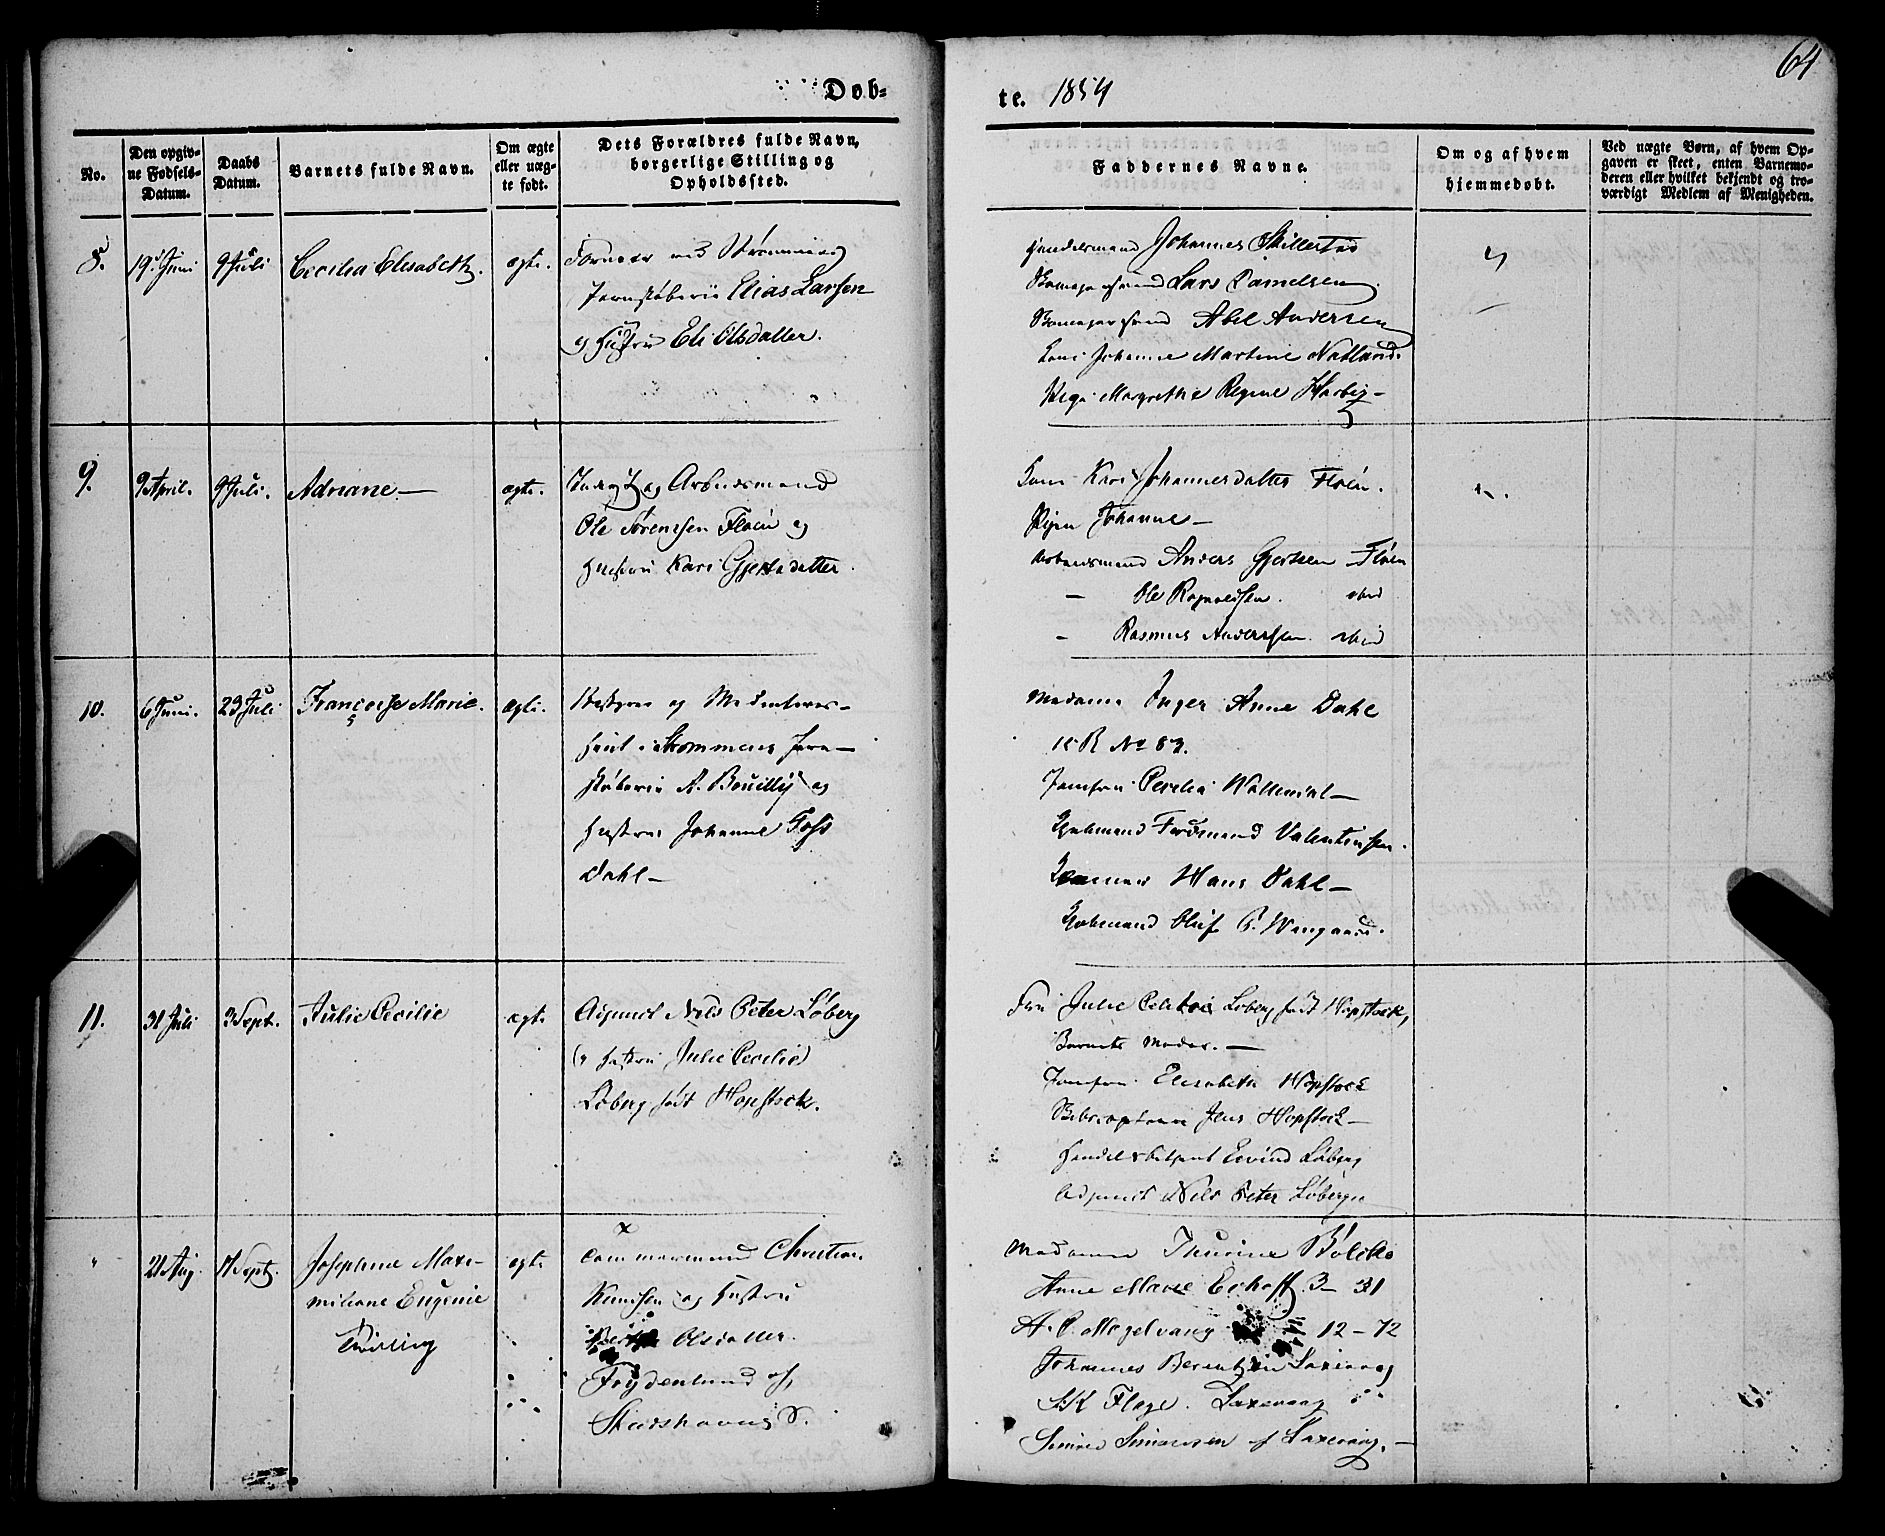 Døb-
te. 1854
64
No.
Den opgiv-
ne Fødsels-
Datum.
Daabs
Datum.
Barnets fulde Navn.
Om ægte
eller uæg-
te født.
Dets Forældres fulde Navn,
borgerlige Stilling og
Opholdssted.
Faddernes Navne.
Om og af hvem
hjemmedøbt.
Ved uægte Børn, af hvem Op-
gaven er skeet, enten Barnemo-
deren eller hvilket bekjendt og tro-
værdigt Medlem af Menigheden.
8.
19 Juni
9 Juli
Cecilia Elisabeth.
ægte.
Former ved Strømmens
Jernstøberie Elias Larsen
og Hustru Eli Olsdatter.
Handelsmand Johannes
Skomagersvend Lars Danielsen
Skomagersvend Abel Andersen
Kone Johanne Martine Natland.
Pige Margrethe Regine
9.
9 April.
9 Juli.
Adriane —
ægte.
og Arbeidsmand
Ole Sørenssen Fløen og
Hustru Kari Gjertsdatter.
Kone Kari Johannesdatter Fløen.
Pigen Johanne —
Arbeidsmand Anders Gjertsen Fløen
— Ole ibid
— Rasmus Anderssen ibid
10.
6 Juni.
23 Juli
Françoise Marie.
ægte.
Bestyrer og Medinteres-
sent i Strømmens Jern-
støberie A. Bouilly og
Hustrue Johanne Foss
Dahl —
Madame Inger Anne Dahl
12 R No 83.
Jomfru Cecilia
Kjøbmand Ferdinand Valentinsen.
Hans Dahl —
Kjøbmand Oluf P. Wingaard.
11.
31 Juli
3 Sept.
Julie Cecilie
ægte
Adjunct Niels Peter Løberg
og Hustru Julie Cecilie
Løberg født Hopstock.
Fru Julie Cecilie Løberg født Hopstock,
Barnets Moder. —
Jomfru Elisabeth Hopstock
Jens Hopstock —
Handelsbetjent Eivind Løberg
Adjunct Niels Peter Løberg
"
21 Aug.
17 Septbr.
Josephine Maxi-
miliane Eugenie
Tvilling
ægte
x
Tømmermand Christian
Knudsen og Hustru
Olsdatter.
Frydenlund af
Stadshavnen S.
Madame Thurine
Anne Marie Eckhoff 3 — 31
A. C. Møgelvang 12 — 72
Johannes Berentzen Laxevaag
S. K. Flage. Laxevaag
Simonsen af Laxevaag. —